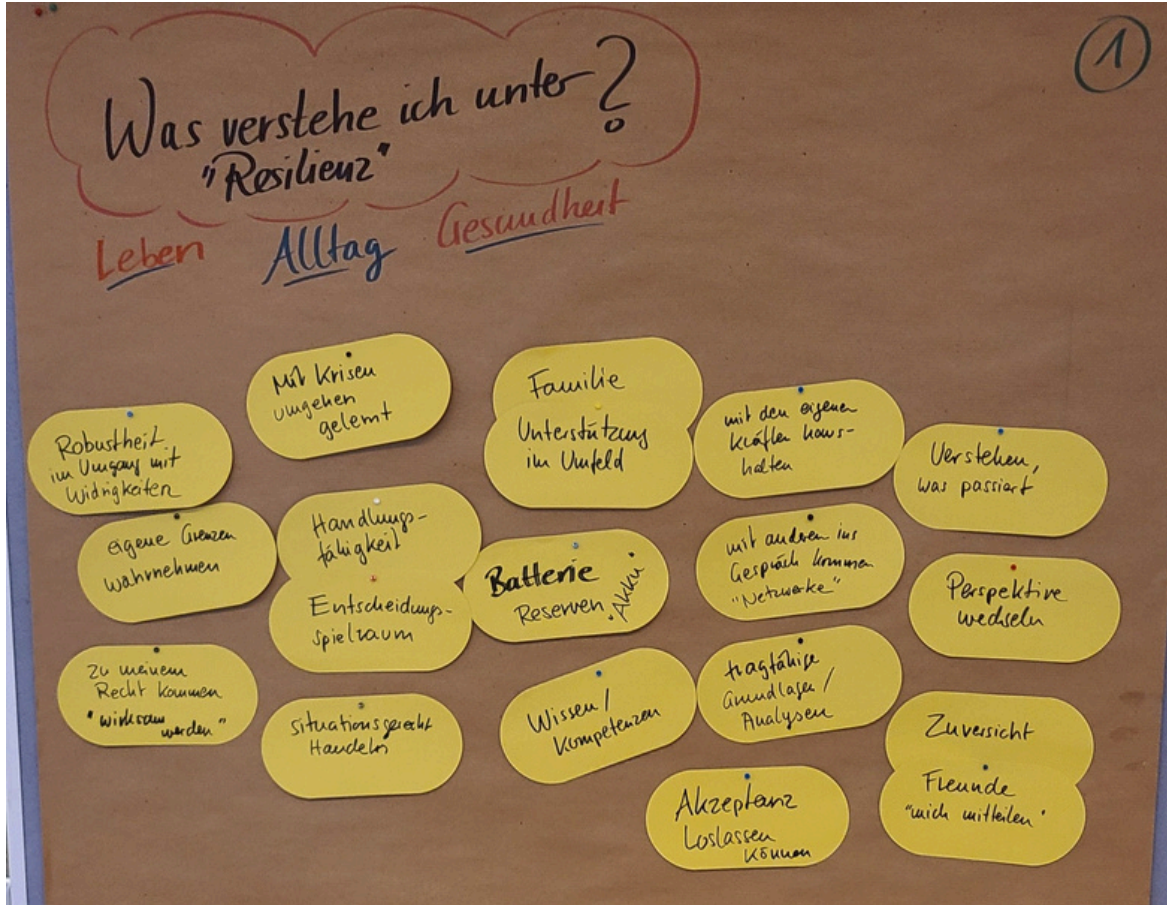 1
Was verstehe ich unter ?
"Resilienz"
Leben Alltag Gesundheit
Mit Krisen
umgehen
gelernt
Familie
Unterstützung
im Umfeld
mit den eigenen
Kräften haus-
halten
Robustheit
im Umgang mit
Widrigkeiten
Verstehen,
was passiert
eigene Grenzen
wahrnehmen
Handlungs-
fähigkeit
Entscheidungs-
spielraum
Batterie
Reserven "Akku"
mit anderen ins
Gespräch kommen
"Netzwerke"
Perspektive
wechseln
zu meinem
Recht kommen
"wirksam
werden"
situationsgerecht
Handeln
Wissen/
Kompetenzen
tragfähige
Grundlagen/
Analysen
Zuversicht
Freunde
"mich mitteilen"
Akzeptanz
Loslassen
können